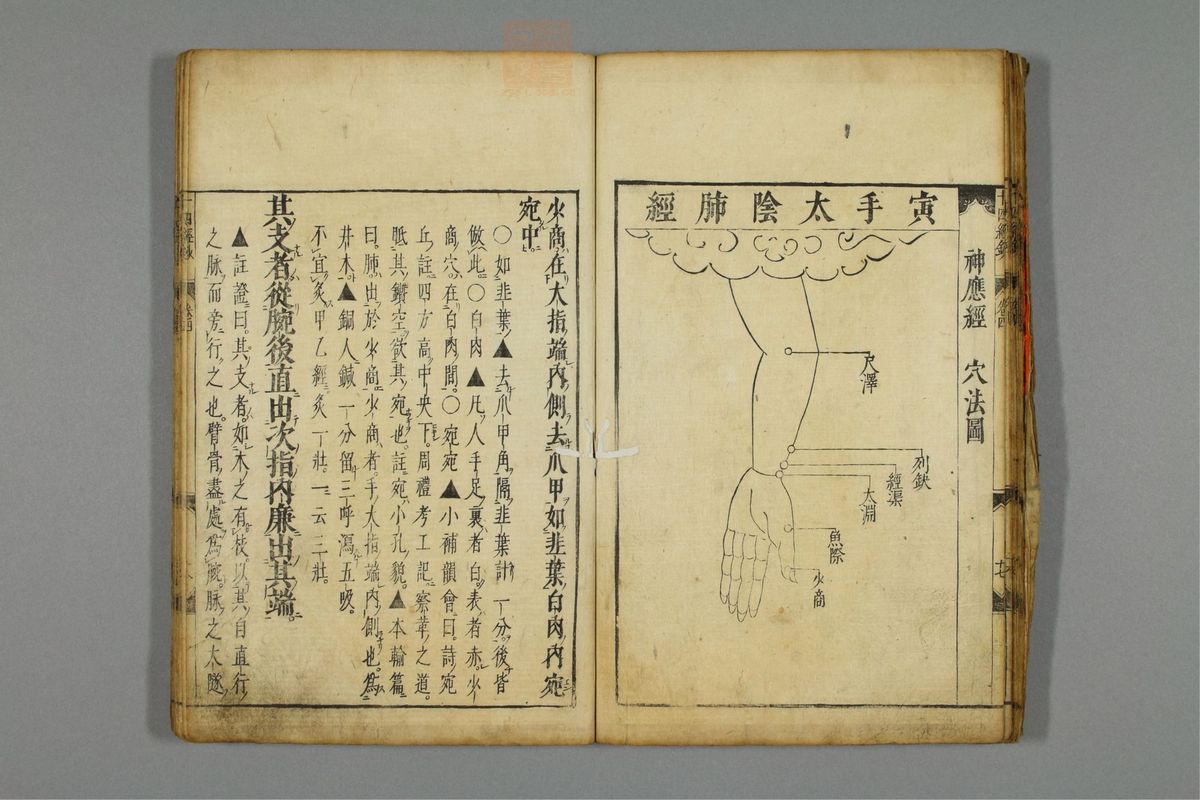 神應經 穴法圖
寅手太陰肺經
尺澤
列缺
經渠
太淵
魚際
少商
少商在大指端內側去爪甲如韭葉白肉內宛
宛中
○如韭葉▲去爪甲角隔韭葉計一分後皆
倣此○白肉▲凡人手足裏者白表者赤少
商穴在白肉間○宛宛▲小補韻會曰詩宛
丘註四方高中央下周禮考工記察革之道
眂其鑽空欲其宛也註宛小孔貌▲本輸篇
曰肺出於少商少商者手大指端內側也為
井木▲銅人鍼一分留三呼瀉五吸
不宜灸甲乙經灸一壯一云三壯
其支者從腕後直出次指內廉出其端
▲註證曰其支者如木之有枝以其自直行
之脉而旁行之也臂骨盡處為腕脉之大隧